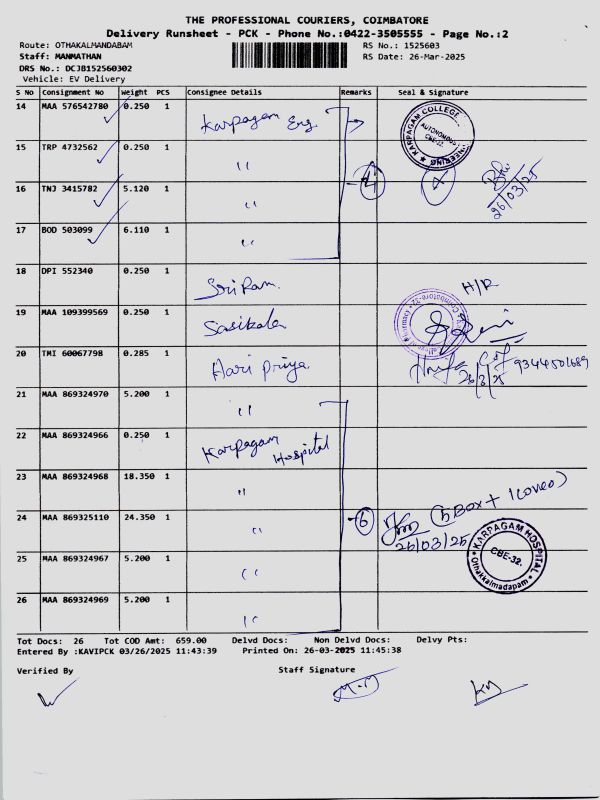 THE PROFESSIONAL COURIERS, COIMBATORE
Delivery Runsheet - PCK - Phone No.:0422-3505555 - Page No.:2
Route: OTHAKALMANDABAM RS No.: 1525603
Staff: MANMATHAN RS Date: 26-Mar-2025
DRS No.: DCJB152560302
Vehicle: EV Delivery
S No Consignment No Weight PCS Consignee Details Remarks Seal & Signature
14 MAA 576542780 0.250 1 Karpagam Eng.
KARPAGAM COLLEGE
AUTONOMOUS
CBE-32.
15 TRP 4732562 0.250 1 "
16 TNJ 3415782 5.120 1 " 4
26/03/25
17 BOD 503099 6.110 1 "
18 DPI 552340 0.250 1 SriRam.
H/R
19 MAA 109399569 0.250 1 Sasikala
20 TMI 60067798 0.285 1 Hari priya
26/3/25 9344501689
21 MAA 869324970 5.200 1 "
22 MAA 869324966 0.250 1 Karpagam Hospital
23 MAA 869324968 18.350 1 "
24 MAA 869325110 24.350 1 " 6
(5 Box + 1 cover)
26/03/25
KARPAGAM HOSPITAL
CBE-32.
Othakkalmadapam
25 MAA 869324967 5.200 1 "
26 MAA 869324969 5.200 1 "
Tot Docs: 26 Tot COD Amt: 659.00 Delvd Docs: Non Delvd Docs: Delvy Pts:
Entered By :KAVIPCK 03/26/2025 11:43:39 Printed On: 26-03-2025 11:45:38
Verified By Staff Signature